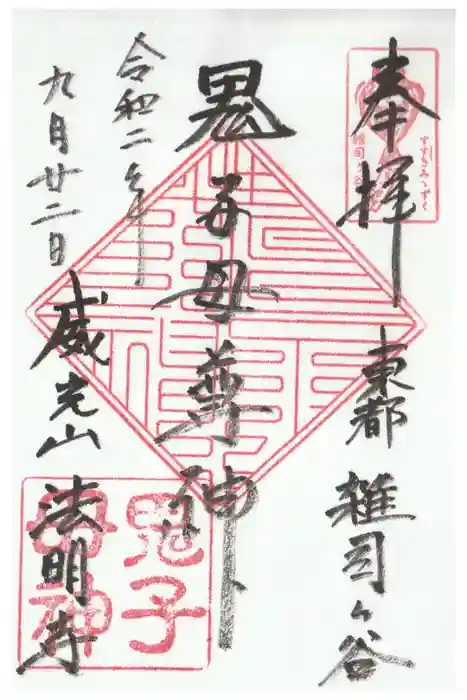 奉拝
東都 雑司ヶ谷
鬼子母尊神
令和二年
九月廿二日
威光山 法明寺
すすきみゝずく
雑司ヶ谷
鬼子
母神